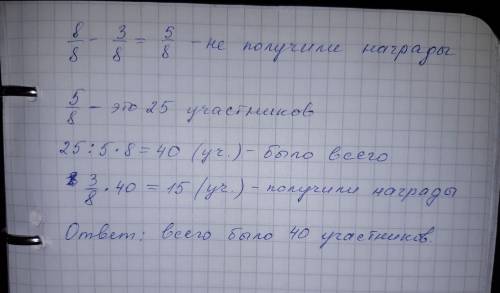 8/8 - 3/8 = 5/8 - не получили награды
5/8 - это 25 участников
25 : 5 · 8 = 40 (уч.) - было всего
3/8 · 40 = 15 (уч.) - получили награды
Ответ: всего было 40 участников.